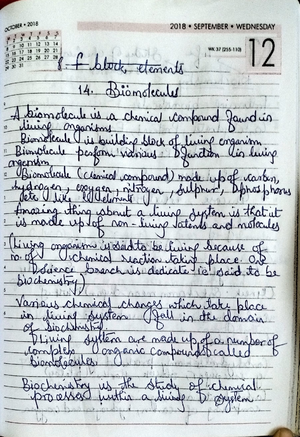 OCTOBER • 2018
2018 • SEPTEMBER • WEDNESDAY
WK 37 (255-110)
12
8. f block elements
14. Biomolecules
A biomolecule is a chemical compound found in
living organisms
Biomolecule is building block of living organism
Biomolecule perform various function in living
organism
Biomolecule (chemical compound) made up of carbon,
hydrogen, oxygen, nitrogen, sulphur, phosphorus
etc like elements
Amazing thing about a living system is that it
is made up of non-living and molecules
(Living organism is said to be living because of
no. of chemical reaction taking place. One
science branch is dedicate is said to be
biochemistry)
Various chemical changes which take place
in living system fall in the domain
of biochemistry.
Living system are made up of a number of
complex organic compounds called
biomolecules
Biochemistry is the study of chemical
process within a living system